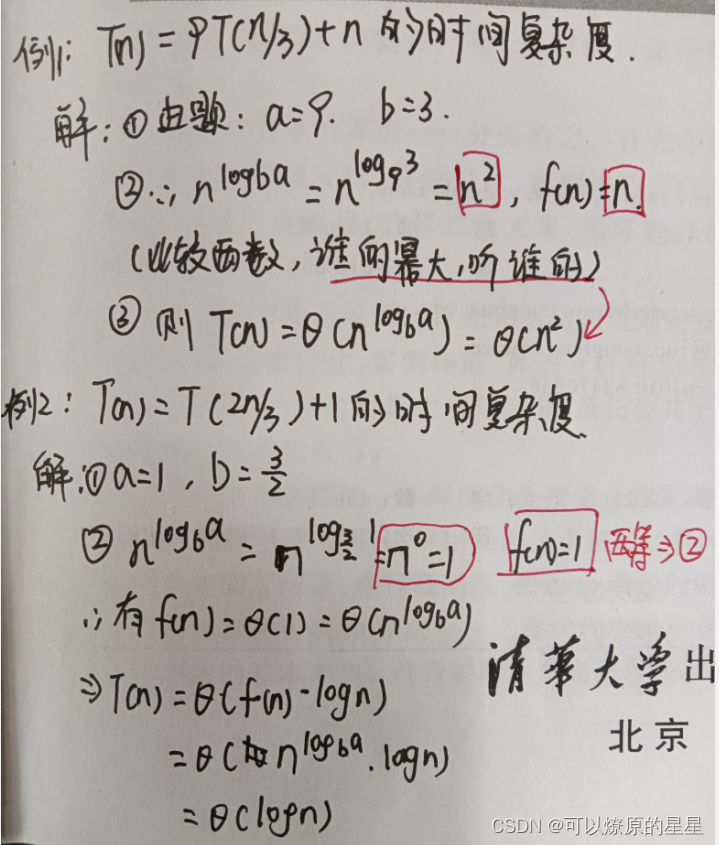 例1: T(n) = 9T(n/3)+n 的时间复杂度.
解: ① 由题: a=9. b=3.
②∴ n^log_b a = n^log_9 3 = n^2, f(n)=n.
(比较两数, 谁的幂大, 听谁的)
③ 则 T(n) = θ(n^log_b a) = θ(n^2)
例2: T(n)=T(2n/3)+1 的时间复杂度
解:① a=1, b=3/2
② n^log_b a = n^log_3/2 1 = n^0 = 1 f(n)=1 两等⇒②
∴有 f(n)=θ(1)=θ(n^log_b a)
⇒T(n)=θ(f(n)·logn)
=θ(n^log_b a.logn)
=θ(logn)
清华大学出
北京
CSDN @可以燎原的星星